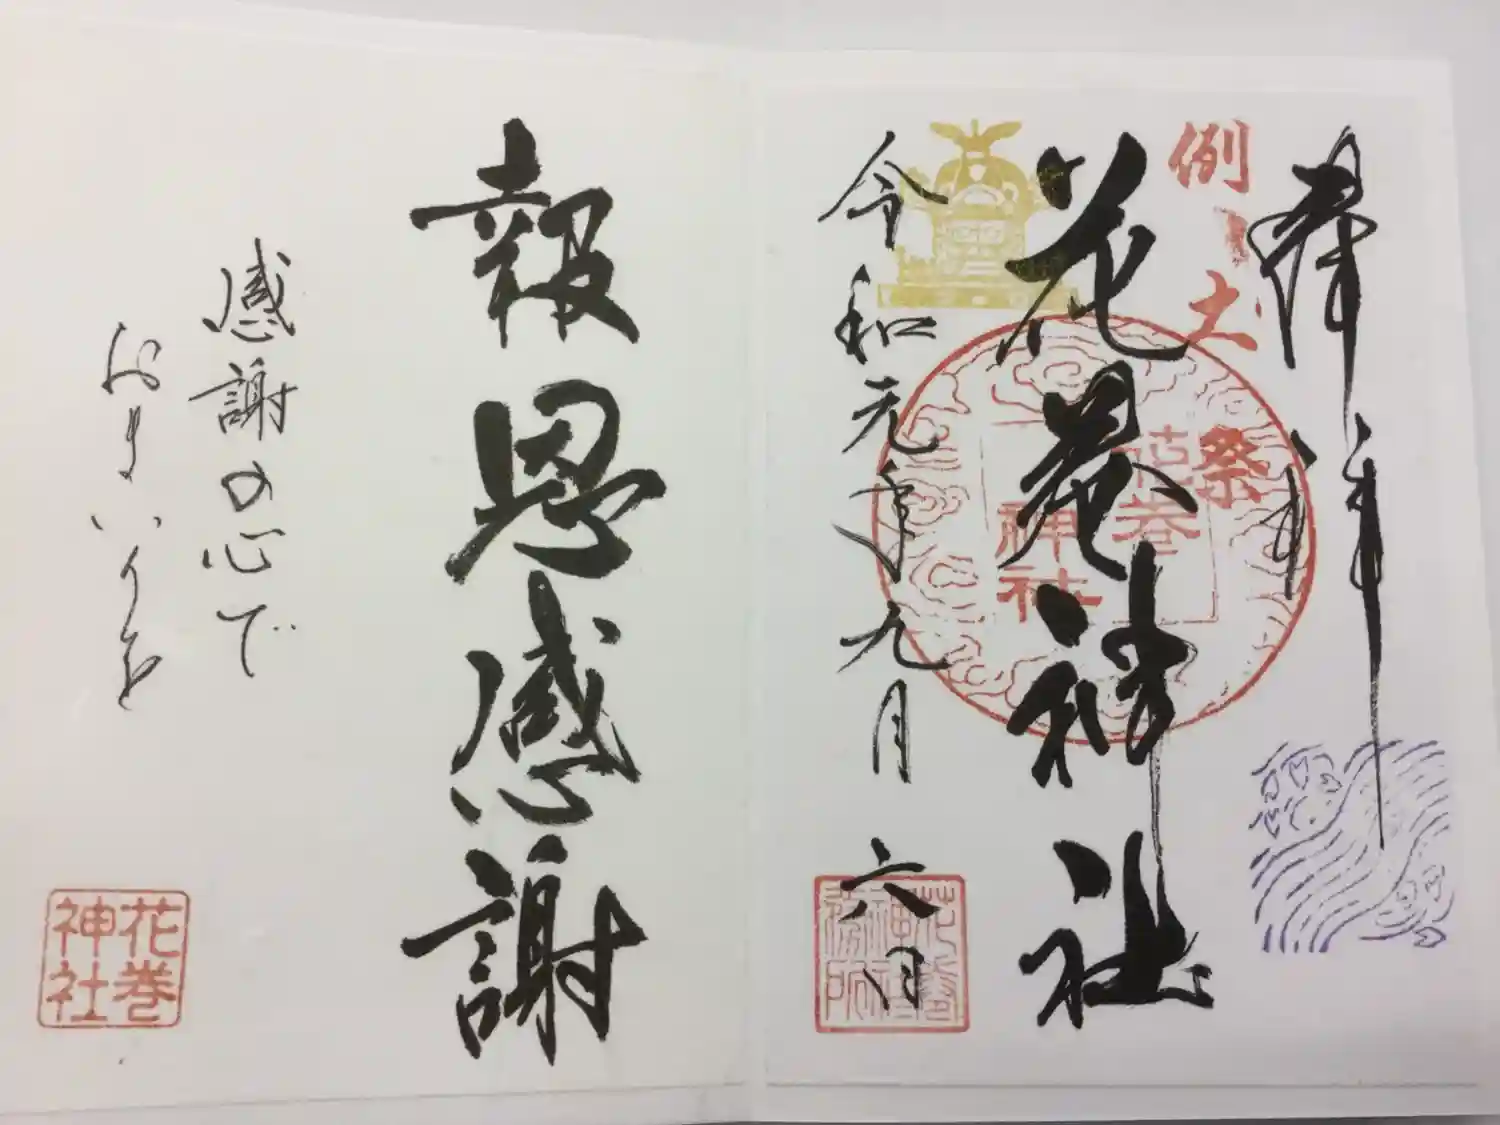 奉拝
例大祭
花巻神社
花巻
神社
令和元年九月六日
花巻
神社
報恩感謝
感謝の心で
おまいりを
花巻
神社